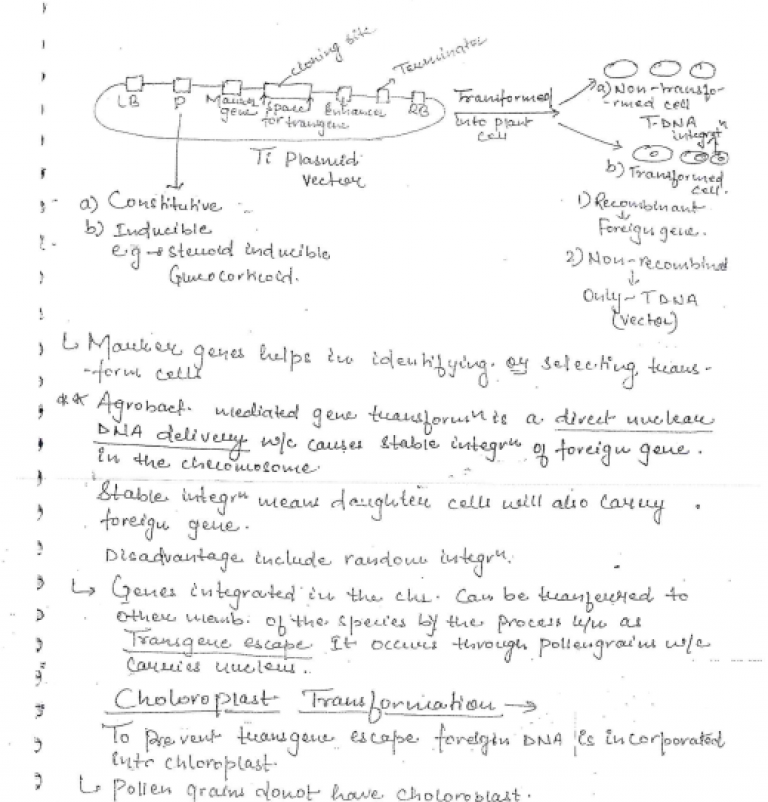 cloning site
Terminator
LB P Marker gene space for transgene Enhancer RB
Ti Plasmid vector
Transformed into plant cell
a) Non-transfo-
-rmed cell
T-DNA
integratn
b) Transformed
cell.
1) Recombinant
↓
Foreign gene.
2) Non-recombined
↓
Only ~ TDNA
(vector)
a) Constitutive
b) Inducible
e.g → steroid inducible
Glucocorticoid.
↳ Marker genes helps in identifying. or selecting trans-
-form cells
** Agrobact. mediated gene transformn is a direct nuclear
DNA delivery w/c causes stable integrn of foreign gene.
in the chromosome.
Stable integrn means daughter cells will also carry
foreign gene.
Disadvantage include random integrn.
↳ Genes integrated in the chr. Can be transferred to
other memb. of the species by the process k/n as
Transgene escape It occurs through pollengrains w/c
carries nucleus.
Choloroplast Transformation →
To prevent transgene escape foreign DNA is incorporated
into chloroplast.
↳ Pollen grains donot have choloroplast.